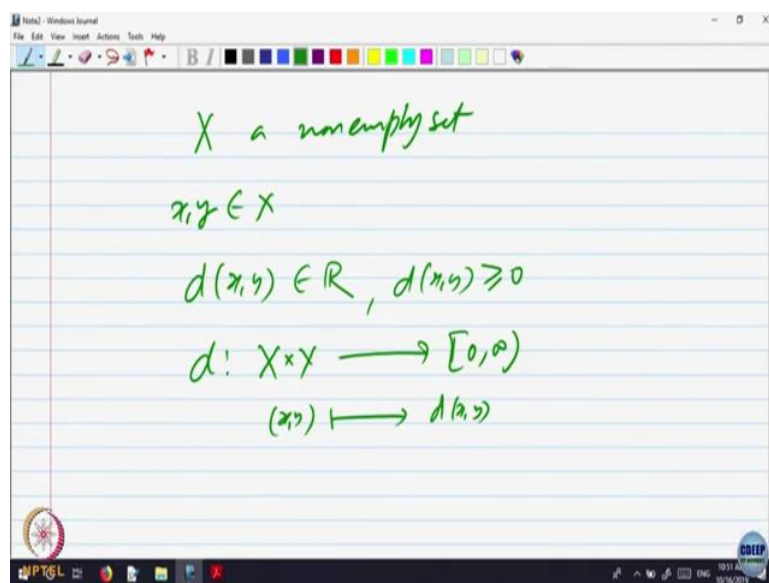 Note2 - Windows Journal
File Edit View Insert Actions Tools Help
B I
X a nonempty set
x, y ∈ X
d(x, y) ∈ ℝ, d(x, y) ≥ 0
d: X × X ⟶ [0, ∞)
(x, y) ⟼ d(x, y)
NPTEL
CDEEP
ENG
10:51 A
10/16/2019